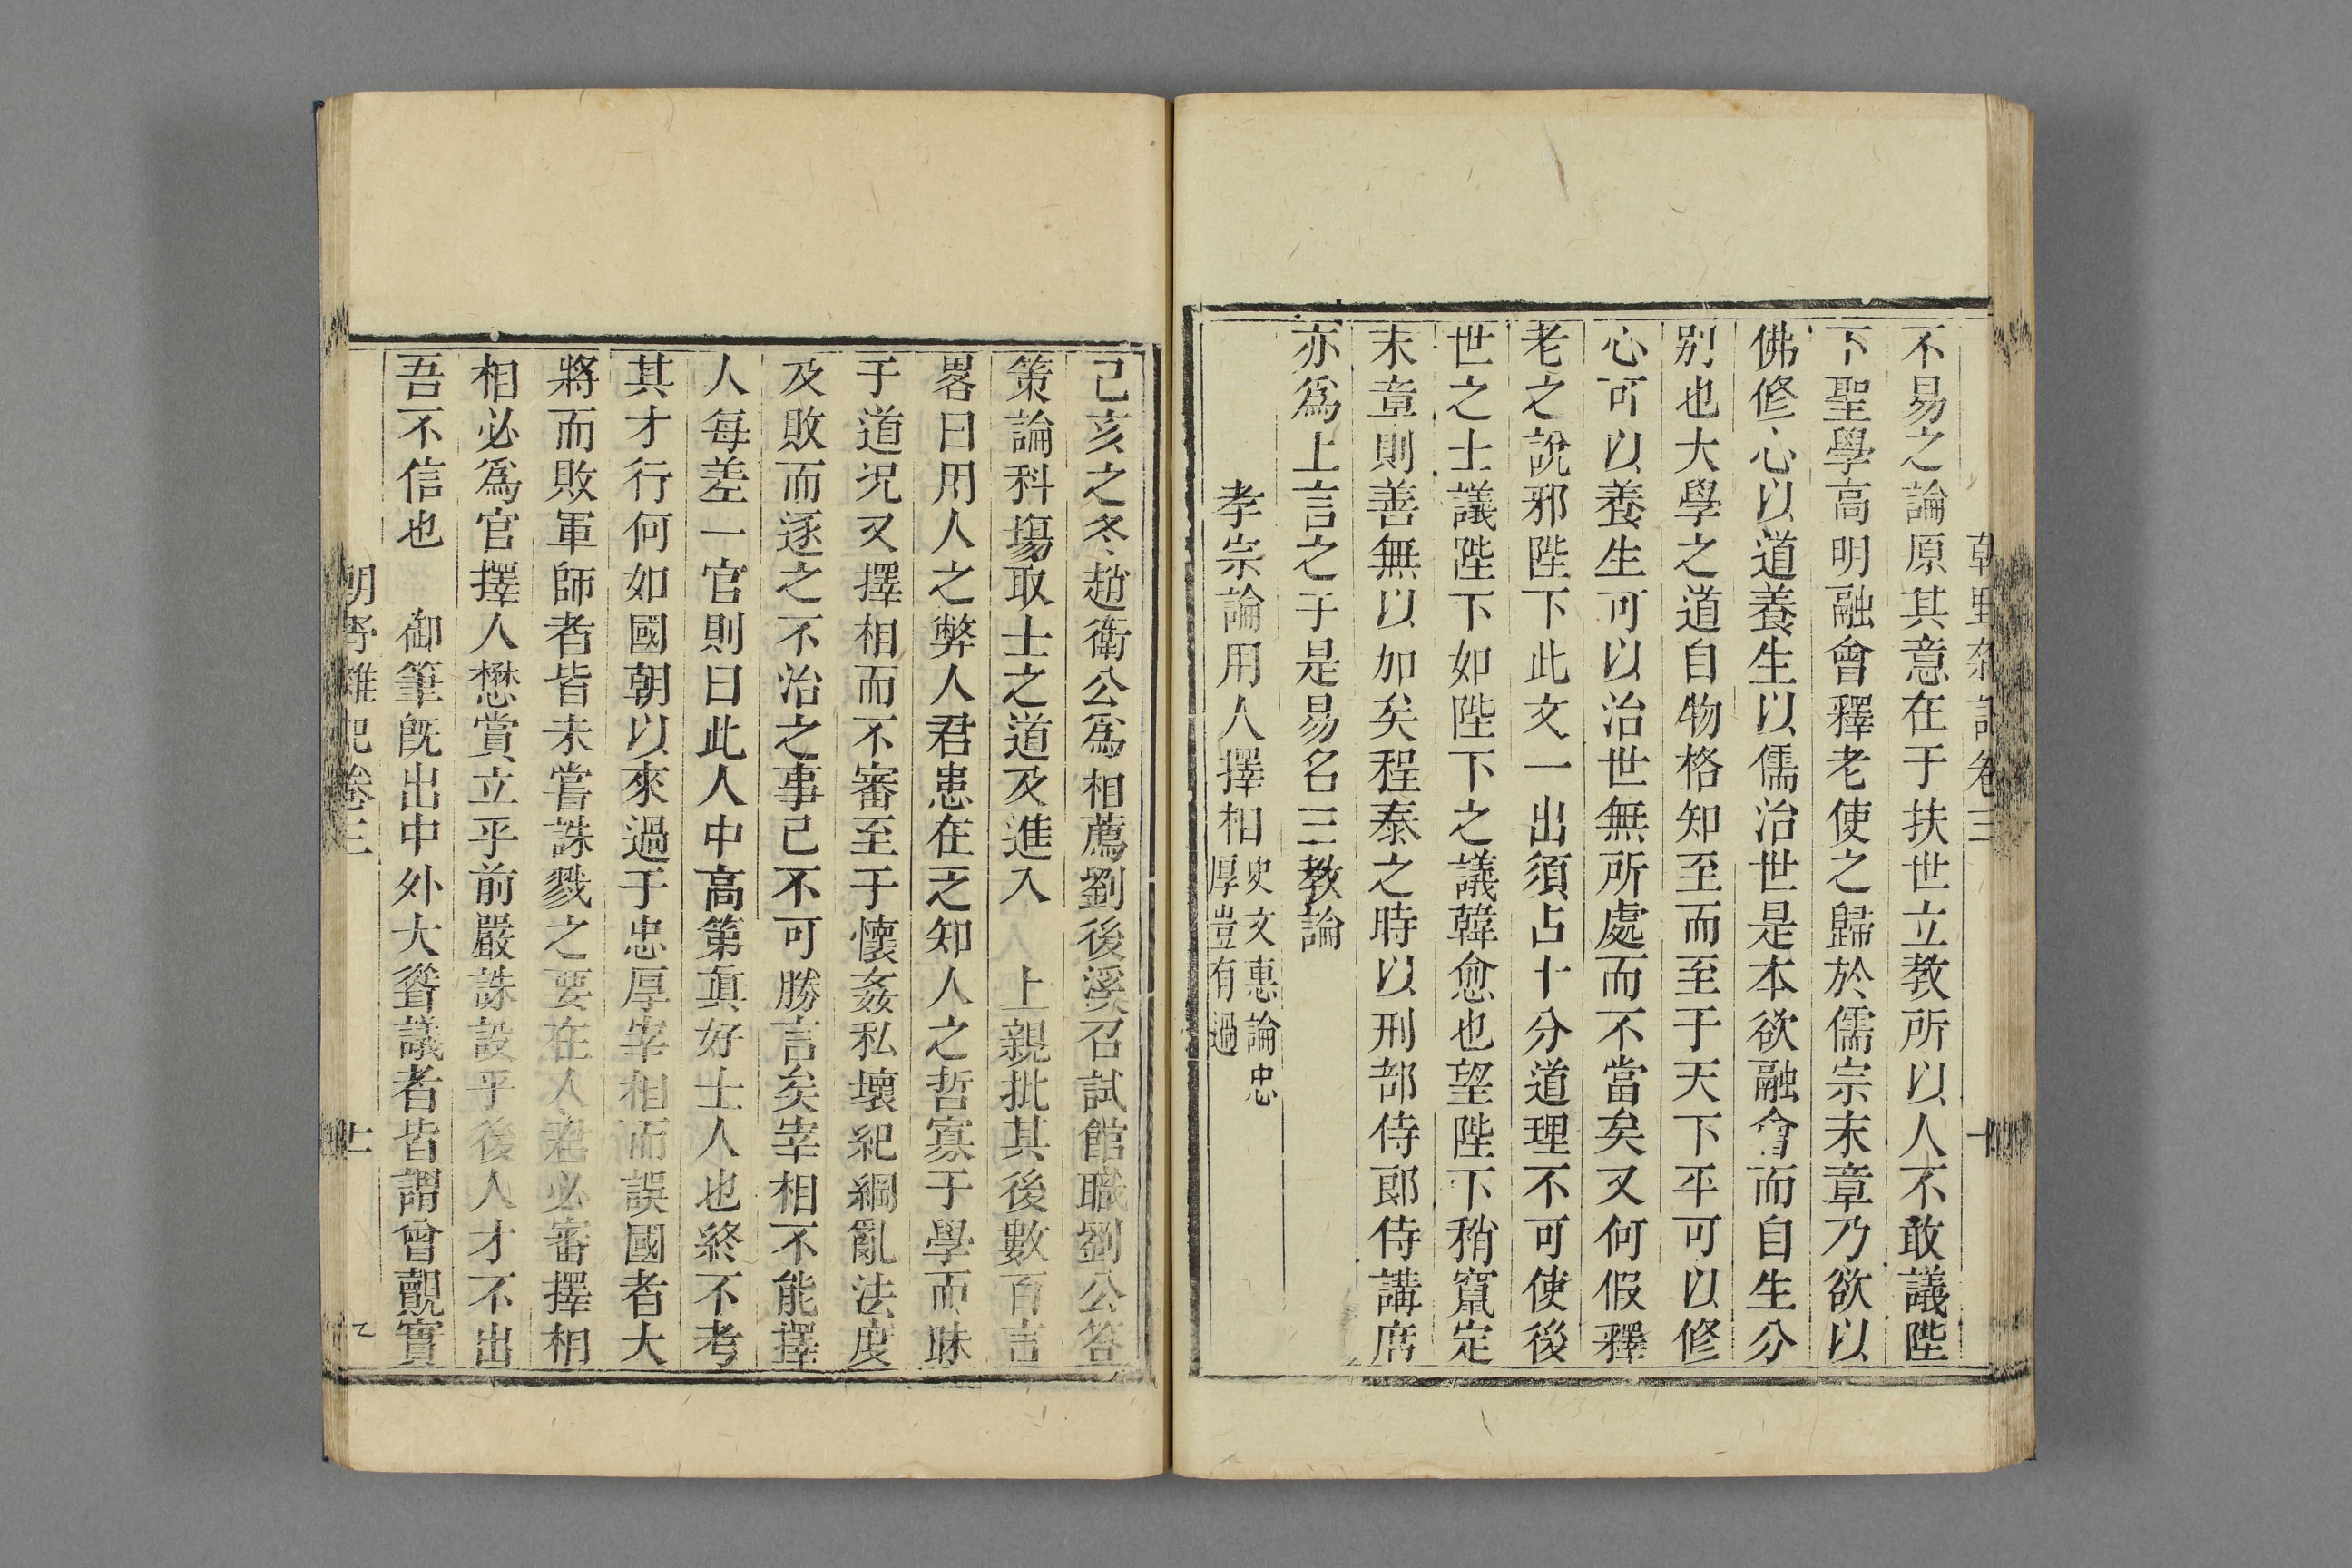 朝野雜記卷三
不易之論原其意在于扶世立教所以人不敢議陛
下聖學高明融會釋老使之歸於儒宗末章乃欲以
佛修心以道養生以儒治世是本欲融會而自生分
别也大學之道自物格知至而至于天下平可以修
心可以養生可以治世無所處而不當矣又何假釋
老之說邪陛下此文一出須占十分道理不可使後
世之士議陛下如陛下之議韓愈也望陛下稍竄定
末章則善無以加矣程泰之時以刑部侍郎侍講席
亦爲上言之于是易名三教論
孝宗論用人擇相史文惠論忠
厚豈有過
己亥之冬趙衛公爲相薦劉後溪召試館職劉公答
策論科塲取士之道及進入　上親批其後數百言
畧曰用人之弊人君患在乏知人之哲寡于學而昧
于道况又擇相而不審至于懷姦私壞紀綱亂法度
及敗而逐之不治之事已不可勝言矣宰相不能擇
人每差一官則曰此人中高第真好士人也終不考
其才行何如國朝以來過于忠厚宰相而誤國者大
將而敗軍師者皆未嘗誅戮之要在人君必審擇相
相必爲官擇人懋賞立乎前嚴誅設乎後人才不出
吾不信也　御筆旣出中外大聳議者皆謂曾覿實
朝野雜記卷三